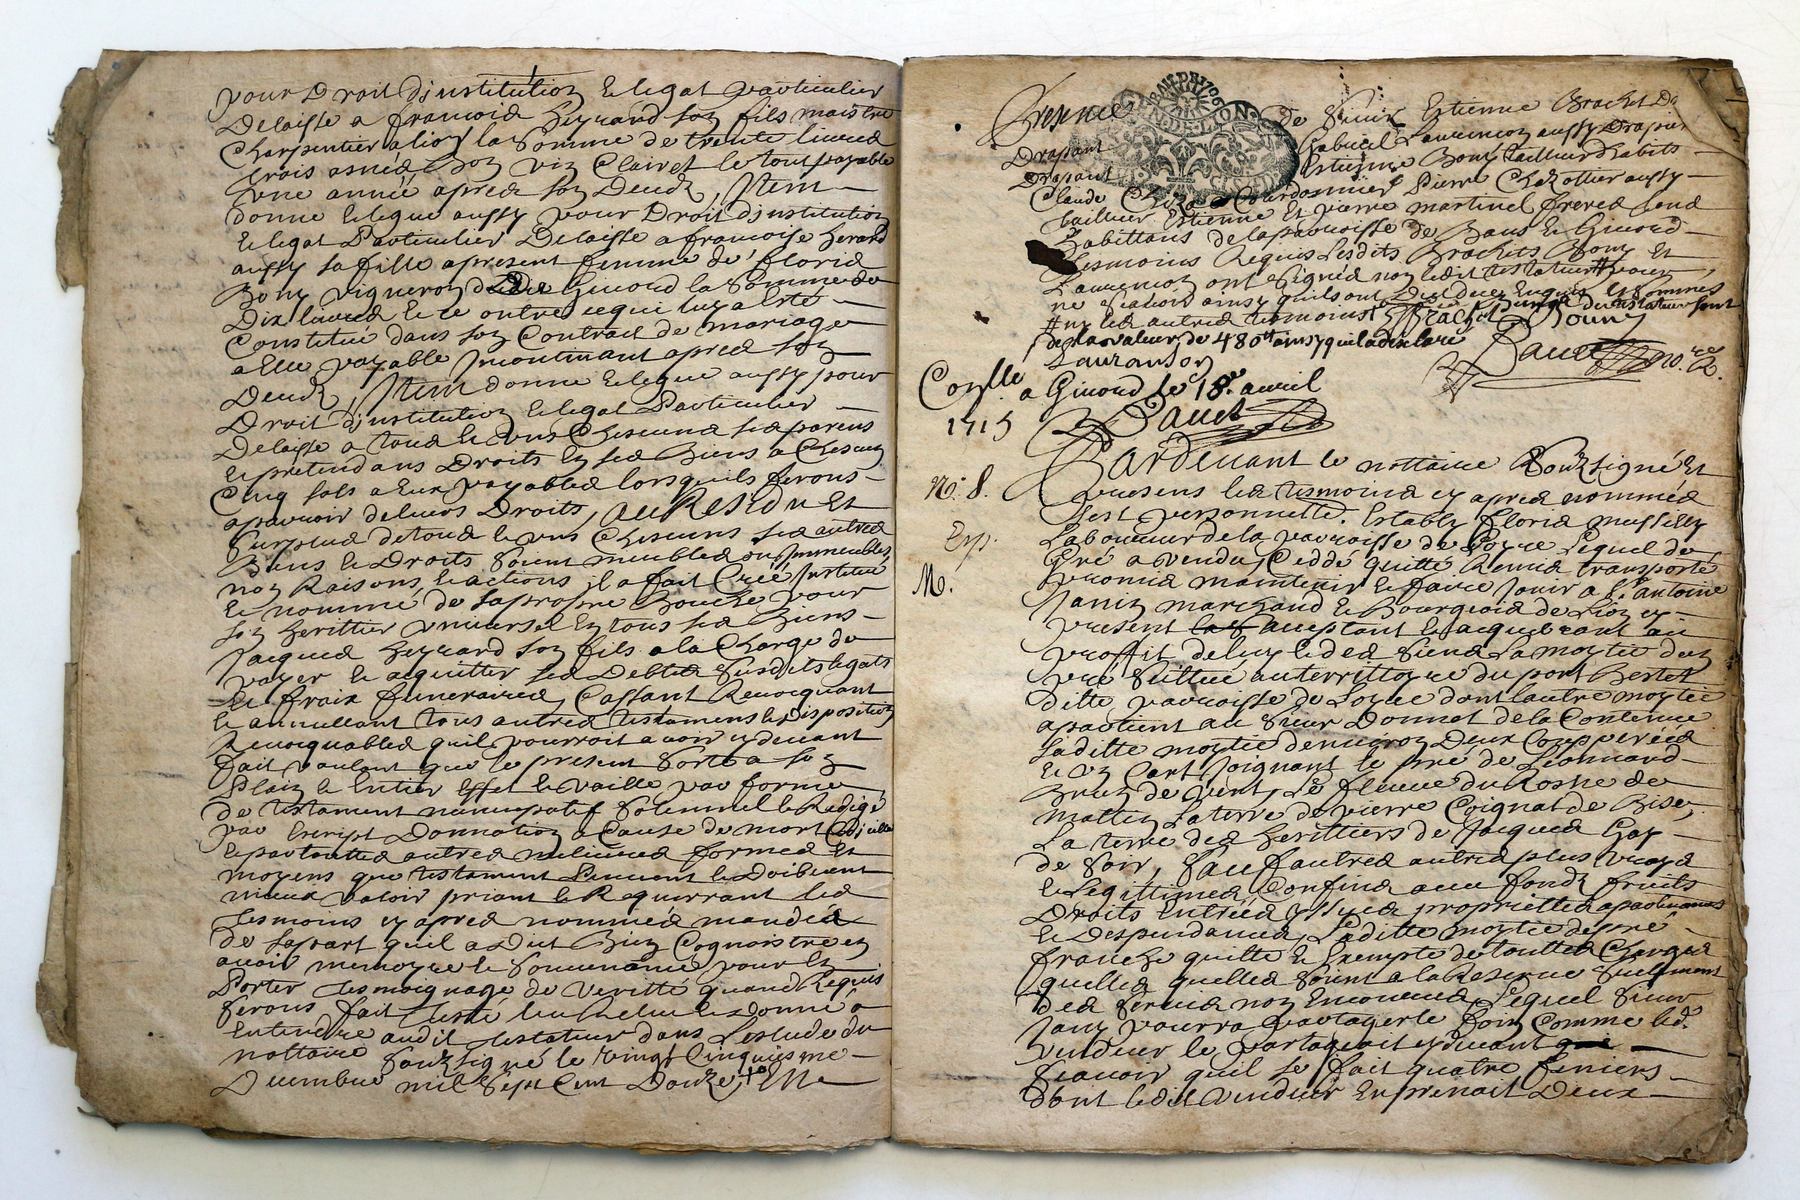 pour Droit d'institution & legat particulier
Delaisse a francois heyrard son fils maistre
Charpentier a lion la somme de trente livres
trois asnées Bon vin Clairet le tout payable
une année apres son Deceds, Item
donne & legue aussy pour Droit d'institution
& legat Particulier Delaisse a francoise
aussy sa fille apresent femme de floris
Bony vigneron de Givord la somme de
Dix livres & ce outre ce qui luy a esté
Constitué dans son Contract de mariage
a Elle payable Incontinant apres son
Deceds, Item donne & legue aussy pour
Droit d'institution & legat Particulier
Delaisse a tous & uns Chescuns ses parens
& pretendans Droits En ses Biens a Chescun
Cinq sols a Eux payables lorsquils ferons
aparoir de leurs Droits, au Residu Et
surplus de tous & uns Chescuns ses autres
Biens & Droits soient meubles ou Immeubles,
noz Raisons, & actions il a fait Créé Institué
& nommé de sa propre Bouche pour
son herittier universel En tous ses Biens
Jacques heyrard son fils a la Charge de
payer & acquitter ses Debtes susdits legats
& fraix funeraires, Cassant Revocquant
& annullant tous autres testamens & Disposition
Revocquables quil pourroit avoir cydevant
fait voulant que le present sorte a son
Plain & Entier Effet & vaille par forme
de testament nuncupatif solemnel & Redigé
par Escript Donnation a Cause de mort Codicille
& par touttes autres meilieures formes Et
moyens que testament Peuvent & Doibvent
mieux valoir priant & Requerrant les
tesmoins cy apres nommés mandés
de sa part quil a Dict Bien Cognoistre en
avoir memoyre & souvenance pour Et
Porter tesmoignage de verité quand Requis
serons, fait leu & donné a
Entendre audit testateur dans L'estude du
nottaire soubsigné le vingt Cinquiesme
Decembre mil sept Cent Douze En
Presence de sieur Estienne Brachet
Drapant Gabriel Laurençon aussy Drapier
Drapant Estienne Bony tallieur d'habits
Claude Cordonnier Pierre Chazottier aussy
tallieur Estienne Et pierre martinel freres tous
habittans de la parroisse de Bans & Givord
tesmoins Requis lesdits Brachets Bony Et
Laurençon ont signés non ledit testateur pour
ne scavoir ainsy quils ont Dict de ce Enquis & sommés
ny les autres tesmoins Brachet Bouny
de la valeur de 480 tt ainsy quil a declaré
Lauranson Pauet no.re
Con.lle a Givord le 18.e avril
1715 Pauet
N.° 8. Pardevant le nottaire soubsigné Et
presens les tesmoins cy apres nommés
s'est personnellem. Estably floris
Exp. Laboureur de la parroisse de Loyre Lequel de
Gré a vendu Ceddé quitté Remis transporté
M. promis maintenir & faire Jouir a S.r antoine
Janin marchand & Bourgeois de Lion cy
present acceptant & acquerant au
proffit de luy & des siens La moytié d'un
pré sittué au territtoyre du port
ditte parroisse de Loyre dont l'autre moytié
apartient au sieur Donnet de la Contenue
laditte moytié d'environ Deux Coupperées
& un Cart Joignant le pré de Leonnard
de vent, Le fleuve du Rosne de
mattin La terre de pierre Coignat de Bise,
La terre des herittiers de Jacques
de soir, sauf autres autres plus vrays
& Legittimes Confins avec fonds fruits
Droits Entrées yssues proprietes apartenances
& Despendances, Laditte moytié de pré
franche quitte & Exempte de touttes Charges
quelles quelles soient a la Reserve seulement
des servis non Encourus Lequel sieur
Janin pourra partager le foin Comme led.
vendeur le partageoit cydevant
scavoir quil se fait quatre feniers
dont ledit vendeur En prenoit Deux